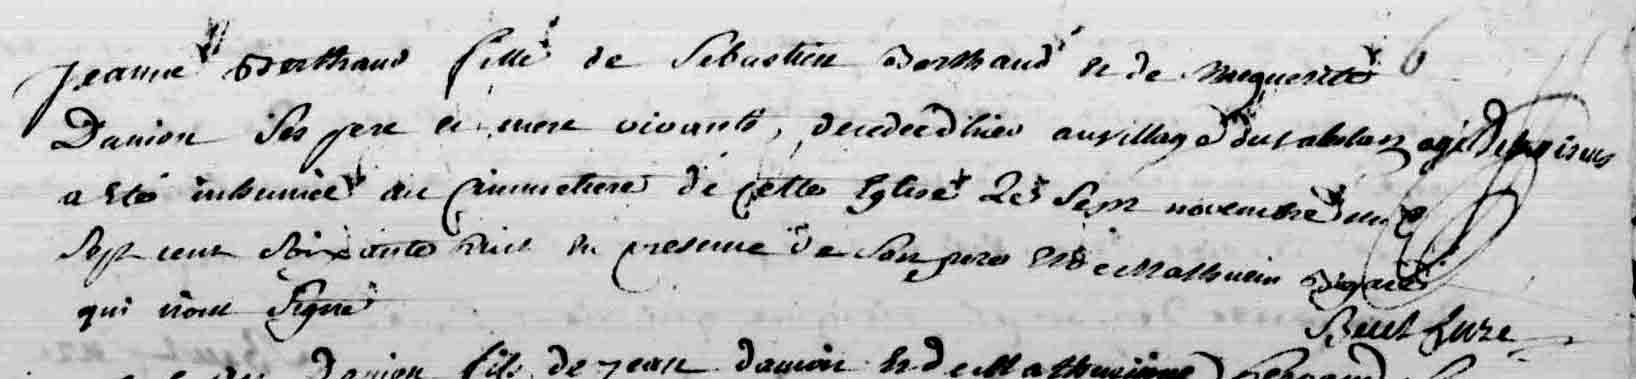 Jeanne Berthaud fille de Sebastien Berthaud et de Marguerite
Danion ses pere et mere vivants, decedee d'hier au village du sablon agé de trois ans
a été inhumée au cimmetiere de cette Eglise Le Sept novembre mil
Sept cent soixante huit en presence de son pere et de Mathurin
qui n'ont signé
Curé
Danion fils de jean danion et de Mathurinne